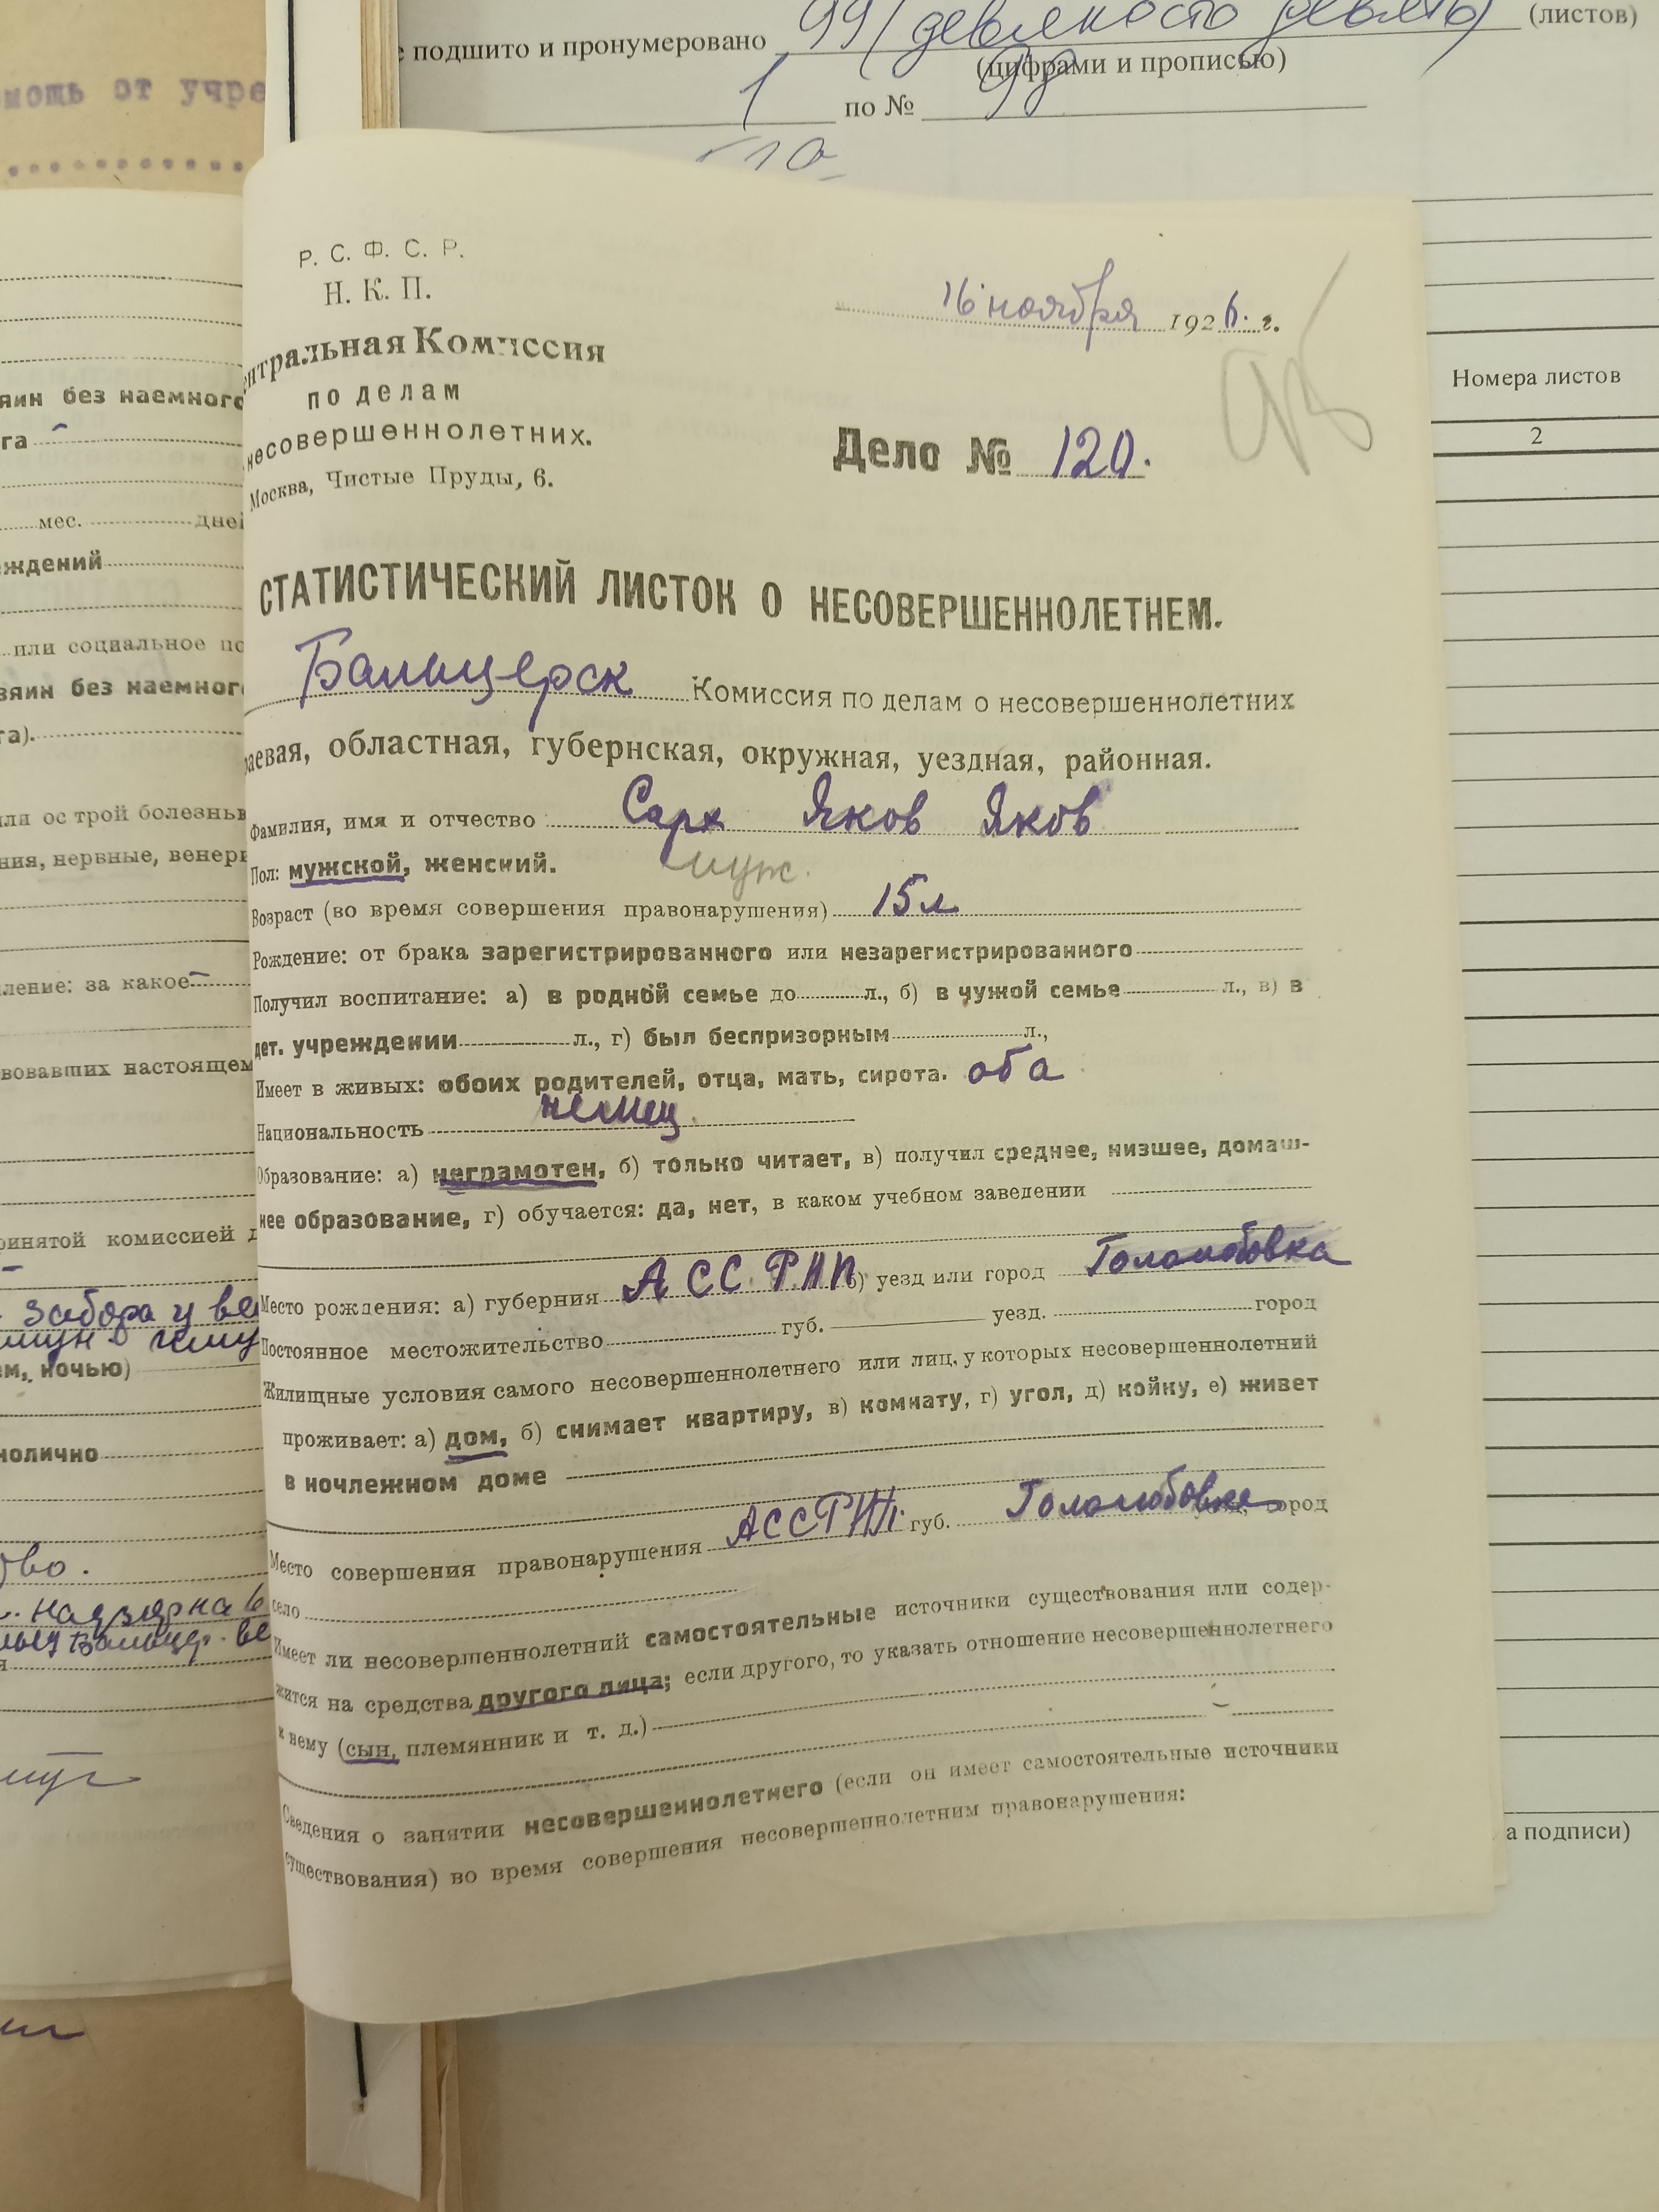 мощь от учре
е подшито и пронумеровано 99 (девяносто девять) (листов)
(цифрами и прописью)
1 по № 99
Номера листов
2
а подписи)
яин без наемного
га
мес. дней
ждений
или социальное по
зяин без наемного
та).
ля ос трой болезнью
ния, нервные, венери
ление: за какое
вовавших настоящем
ринятой комиссией д
забора у
ем, ночью)
нолично
тво.
надзирка
Р. С. Ф. С. Р.
Н. К. П.
нтральная Комиссия
по делам
несовершеннолетних.
Москва, Чистые Пруды, 6.
16 ноября 1926. г.
98
Дело № 120.
СТАТИСТИЧЕСКИЙ ЛИСТОК О НЕСОВЕРШЕННОЛЕТНЕМ.
Бальцерск Комиссия по делам о несовершеннолетних
раевая, областная, губернская, окружная, уездная, районная.
Фамилия, имя и отчество Сарк Яков Яков
Пол: мужской, женский. муж.
Возраст (во время совершения правонарушения) 15 л
Рождение: от брака зарегистрированного или незарегистрированного
Получил воспитание: а) в родной семье до л., б) в чужой семье л., в) в
дет. учреждении л., г) был беспризорным л.,
Имеет в живых: обоих родителей, отца, мать, сирота. оба
Национальность немец.
Образование: а) неграмотен, б) только читает, в) получил среднее, низшее, домаш-
нее образование, г) обучается: да, нет, в каком учебном заведении
Место рождения: а) губерния АССРНП б) уезд или город Гололобовка
Постоянное местожительство губ. уезд. город
Жилищные условия самого несовершеннолетнего или лиц, у которых несовершеннолетний
проживает: а) дом, б) снимает квартиру, в) комнату, г) угол, д) койку, е) живет
в ночлежном доме
Место совершения правонарушения АССРНП. губ. Гололобовка город
село
Имеет ли несовершеннолетний самостоятельные источники существования или содер-
жится на средства другого лица; если другого, то указать отношение несовершеннолетнего
к нему (сын, племянник и т. д.)
Сведения о занятии несовершеннолетнего (если он имеет самостоятельные источники
существования) во время совершения несовершеннолетним правонарушения: